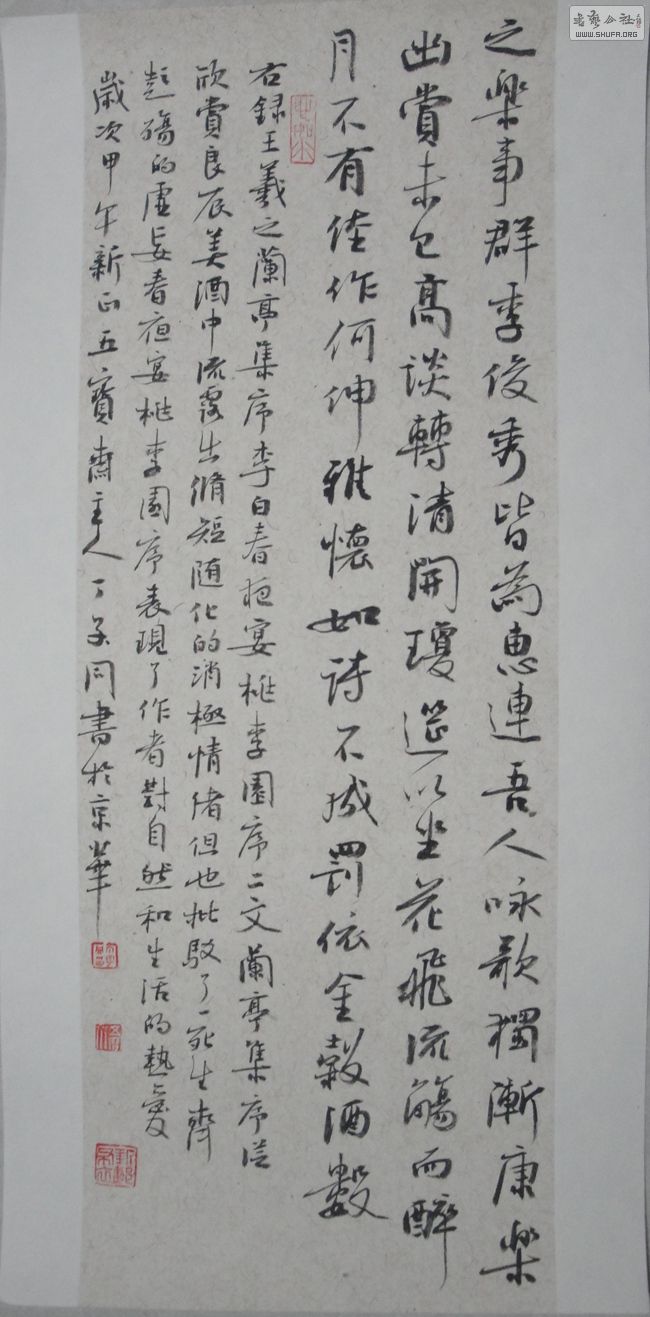 之樂事群季俊秀皆為惠連吾人咏歌獨漸康樂
幽賞未已高談轉清開瓊筵以坐花飛流觴而醉
月不有佳作何伸雅懷如詩不成罰依金穀酒數
右録王羲之蘭亭集序李白春夜宴桃李園序二文蘭亭集序從
欣賞良辰美酒中流露出脩短随化的消極情緒但也批駁了一死生齊
彭殤的虛妄春夜宴桃李園序表現了作者對自然和生活的熱愛
歲次甲午新正五寶齋主人丁子同書於京華
書藝公社
WWW.SHUFA.ORG